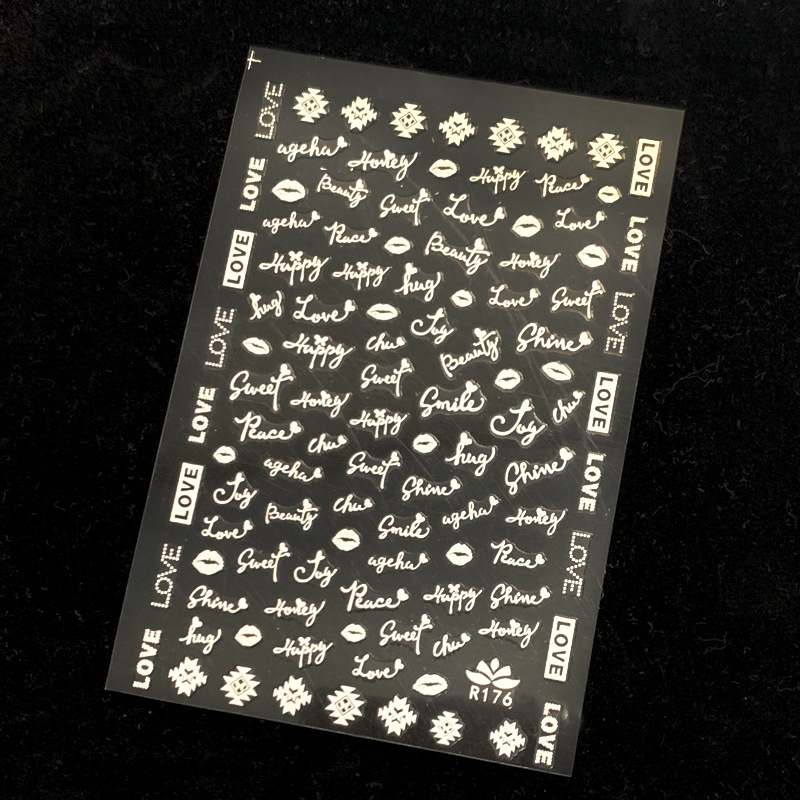 LOVE
ageha Honey Happy Peace LOVE
LOVE Beauty Sweet Love Love
ageha Peace Beauty Honey LOVE
LOVE Happy Happy hug Love Sweet
hug Love Joy Shine LOVE
LOVE Happy chu Beauty
Sweet Honey Sweet Smile Joy chu LOVE
LOVE Peace chu Happy hug Shine
ageha Sweet Shine LOVE
LOVE Joy Beauty chu Smile ageha Honey
Love Sweet Joy ageha Peace LOVE
LOVE Shine Honey Peace Happy Shine
hug Happy Sweet chu Honey LOVE
LOVE Love
R176 LOVE